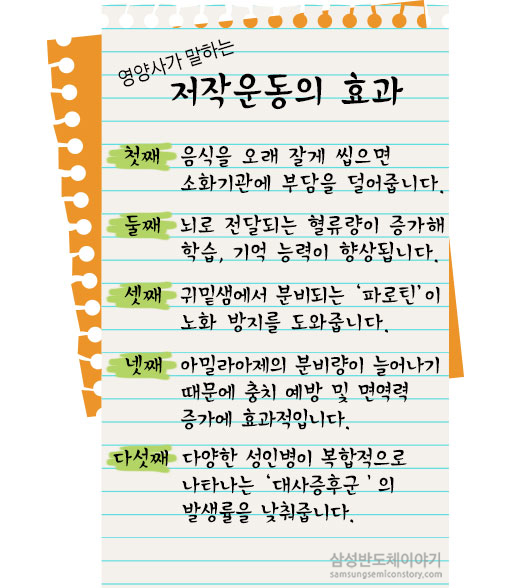 영양사가 말하는
저작운동의 효과
첫째 음식을 오래 잘게 씹으면
소화기관에 부담을 덜어줍니다.
둘째 뇌로 전달되는 혈류량이 증가해
학습, 기억 능력이 향상됩니다.
셋째 귀밑샘에서 분비되는 '파로틴'이
노화 방지를 도와줍니다.
넷째 아밀라아제의 분비량이 늘어나기
때문에 충치 예방 및 면역력
증가에 효과적입니다.
다섯째 다양한 성인병이 복합적으로
나타나는 '대사증후군'의
발생률을 낮춰줍니다.
삼성반도체이야기
samsungsemiconstory.com